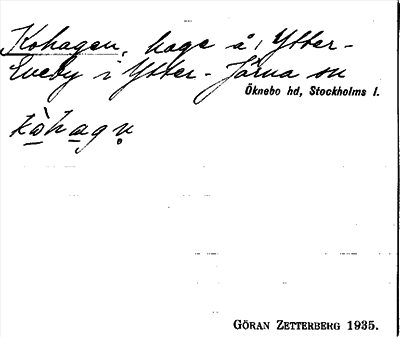 Kohagen, hage å Ytter-
Eneby i Ytter-Järna sn
Öknebo hd, Stockholms l.
kà̱ha̱gṇ
GÖRAN ZETTERBERG 1935.